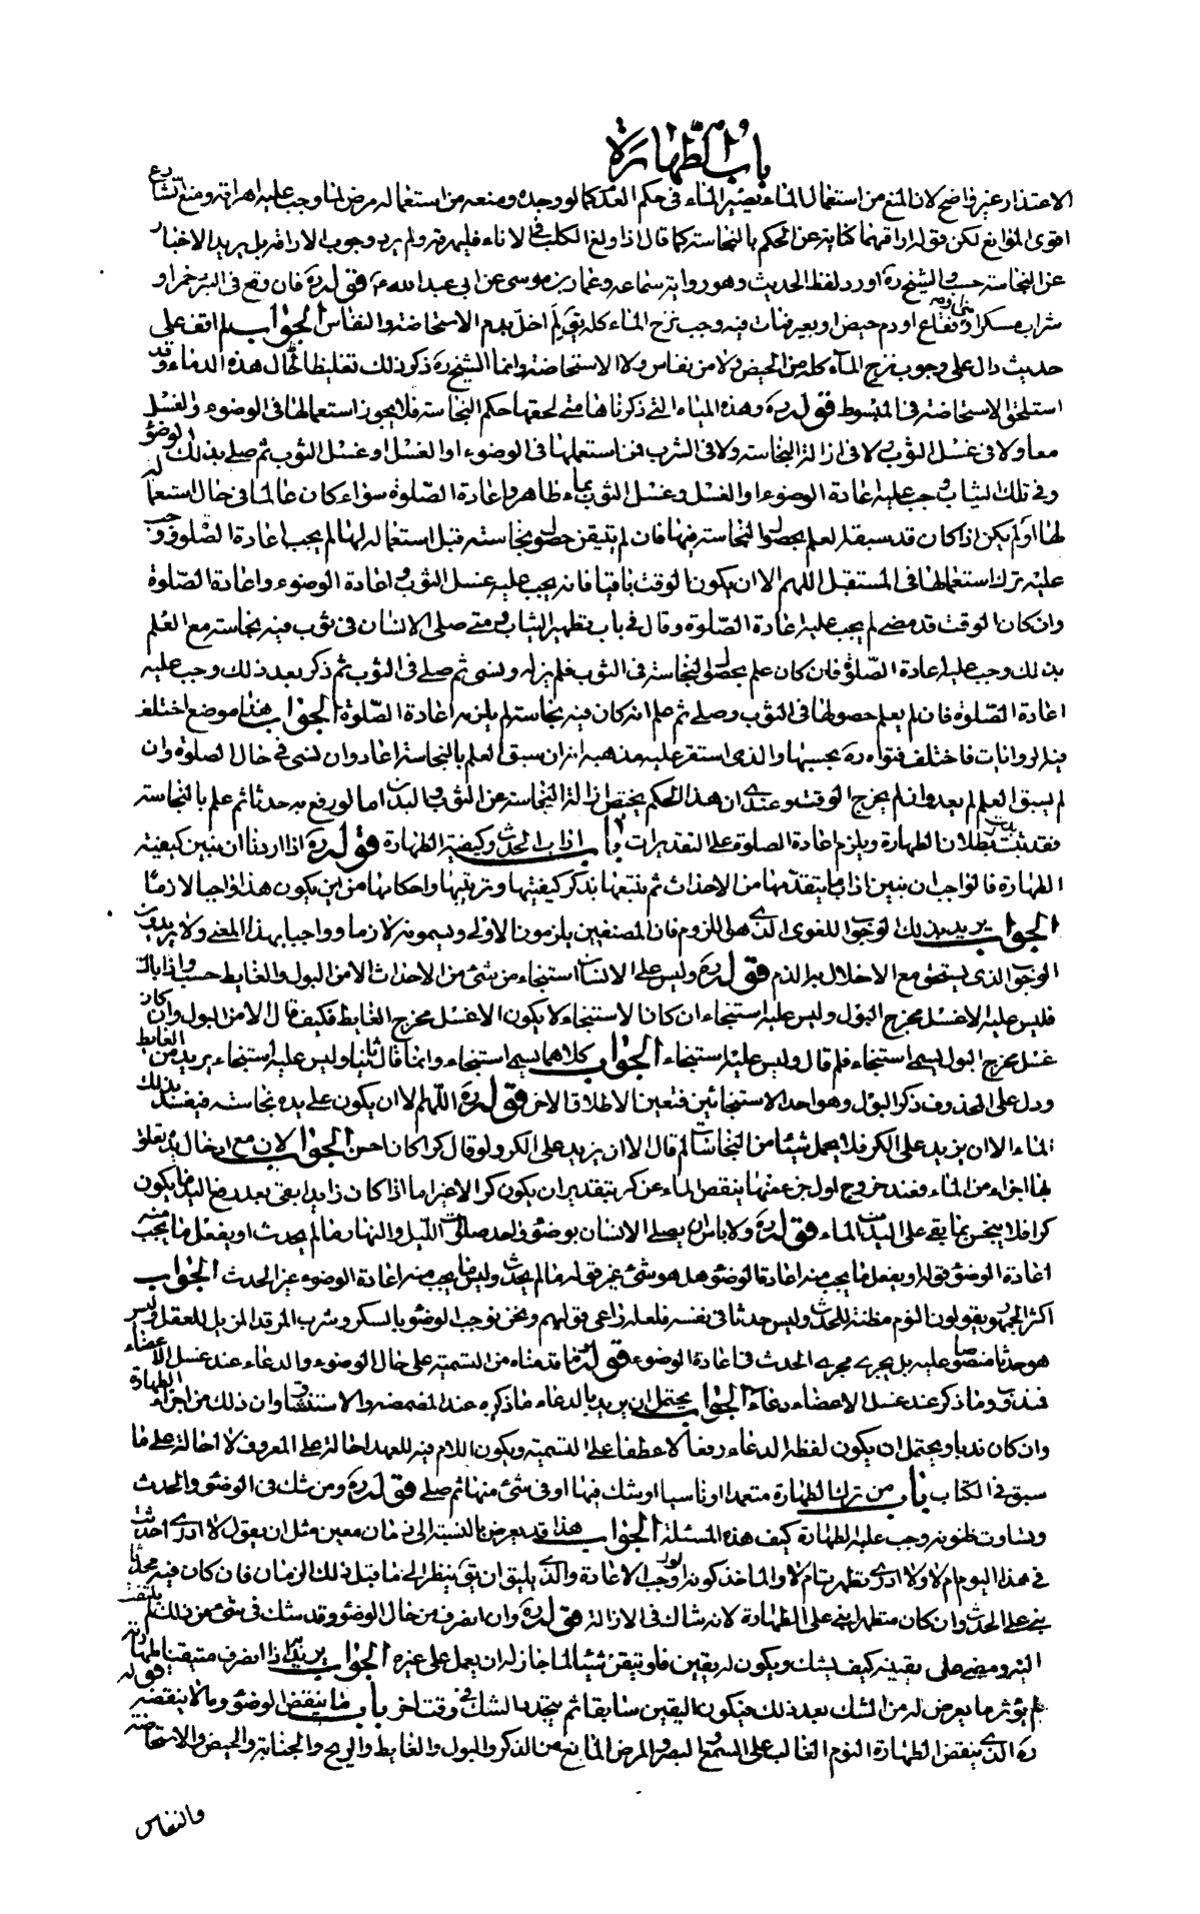 باب الطهارة
الاعتذار غير واضح لان المنع من استعمال الماء يصير الماء فى حكم العدم كما لو وجده ومنعه من استعماله مرض لما وجب عليه اهراقه ومنع الشارع
اقوى الموانع لكن قوله اراقهما كناية عن الحكم بالنجاسة كما قال اذا ولغ الكلب فى الاناء فليهرقه ولم يرد وجوب الاراقة بل يريد الاخبار
عن النجاسة حسب والشيخ ره اورد لفظ الحديث وهو رواية سماعه وعمار بن موسى عن ابى عبد الله ع قوله ره فان وقع فى البئر خمر او
شراب مسكر او فقاع او دم حيض او بعير فمات فيه وجب نزح الماء كله لم اخل بدم الاستحاضة والنفاس الجواب لم اقف على
حديث دال على وجوب نزح الماء كله من الحيض ولا من نفاس ولا الاستحاضة وانما الشيخ ره ذكر ذلك تغليظا لحال هذه الدماء وقد
استلحق الاستحاضة فى المبسوط قوله ره وهذه المياه التى ذكرناها متى لحقها حكم النجاسة فلا يجوز استعمالها فى الوضوء والغسل
معا ولا فى غسل الثوب ولا فى ازالة النجاسة ولا فى الشرب فمن استعملها فى الوضوء او الغسل او غسل الثوب ثم صلى بذلك الوضوء
وفى تلك الثياب وجب عليه اعادة الوضوء او الغسل وغسل الثوب بماء طاهر واعادة الصلوة سواء كان عالما فى حال استعماله
لها او لم يكن اذا كان قد سبقه العلم بحصول النجاسة فيها فان لم يتيقن حصول نجاسته قبل استعماله لها لم يجب اعادة الصلوة ووجب
عليه ترك استعمالها فى المستقبل اللهم الا ان يكون الوقت باقيا فانه يجب عليه غسل الثوب واعادة الوضوء واعادة الصلوة
وان كان الوقت قد مضى لم يجب عليه اعادة الصلوة وقال فى باب تطهير الثياب ومتى صلى الانسان فى ثوب فيه نجاسة مع العلم
بذلك وجب عليه اعادة الصلوة فان كان علم بحصول النجاسة فى الثوب فلم يزله ونسى ثم صلى فى الثوب ثم ذكر بعد ذلك وجب عليه
اعادة الصلوة فان لم يعلم حصولها فى الثوب وصلى ثم علم انه كان فيه نجاسة لم يلزمه اعادة الصلوة الجواب هذا موضع اختلف
فيه الروايات فاختلف فتواه ره بحسبها والذى استقر عليه مذهبه انه ان سبق العلم بالنجاسة اعاد وان نسى فى حال الصلوة وان
لم يسبق العلم لم يعد وان لم يخرج الوقت وعندى ان هذا الحكم يختص ازالة النجاسة عن الثوب والبدن اما لو رفع به حدثا ثم علم بالنجاسة
فقد ثبت بطلان الطهارة ويلزم اعادة الصلوة على التقديرات باب اداب الحدث وكيفية الطهارة قوله ره اذا اردنا ان نبين كيفية
الطهارة فالواجب ان نبين اداب ما يتقدمها من الاحداث ثم نتبعها بذكر كيفيتها وترتيبها واحكامها من اين يكون هذا واجبا لازما
الجواب يريد بذلك الوجوب اللغوى الذى هو اللزوم فان المصنفين يلزمون الاولى ويسمونه لازما وواجبا بهذا المعنى ولا يريدون
الوجوب الذى يستحق مع الاخلال به الذم قوله ره وليس على الانسان استنجاء من شئ من الاحداث الا من البول والغايط حسب واذا بال
فليس عليه الا غسل مخرج البول وليس عليه استنجاء ان كان الاستنجاء لا يكون الا غسل مخرج الغايط فكيف قال الا من البول وان كان
غسل مخرج البول يسمى استنجاء فلم قال وليس عليه استنجاء الجواب كلاهما يسمى استنجاء وانما قال ثانيا وليس عليه استنجاء يريد من الغايط
ودل على المحذوف ذكر البول وهو احد الاستنجائين فتعين الاطلاق الاخر قوله ره اللهم الا ان يكون على يده نجاسة فيفسد بذلك
الماء الا ان يزيد على الكر فلا يحمل شيئا من النجاسات لم قال الا ان يزيد على الكر ولو قال كرا كان احسن الجواب لان مع ادخال يده تعلق
بها اجزاء من الماء فعند خروج اول جزء منها ينقص الماء عن كر بتقدير ان يكون كرا لا غير اما اذا كان زايدا بقى بعد رفع اليد ما يكون
كرا فلا ينجس بما بقى على اليد من الماء قوله ره ولا باس ان يصلى الانسان بوضوء واحد صلوات الليل والنهار ما لم يحدث او يفعل ما يجب منه
اعادة الوضوء قوله او يفعل ما يجب منه اعادة الوضوء هل هو شئ غير قوله ما لم يحدث وليس ما يجب منه اعادة الوضوء غير الحدث الجواب
اكثر الجمهور يقولون النوم مظنة للحدث وليس حدثا فى نفسه فلعله راعى قولهم ونحن نوجب الوضوء بالسكر وشرب المرقد المزيل للعقل وليس
هو حدثا منصوصا عليه بل يجرى مجرى الحدث فى اعادة الوضوء قوله ره ما قدمناه من التسمية على حال الوضوء والدعاء عند غسل الاعضاء
فندب وما ذكر عند غسل الاعضاء دعاء الجواب يحتمل ان يريد بالدعاء ما ذكره عند المضمضة والاستنشاق وان ذلك من اجزاء الطهارة
وان كان ندبا ويحتمل ان يكون لفظ الدعاء رفعا لا عطفا على التسمية ويكون اللام فيه للعهد احالة على المعروف لا احالة على ما
سبق فى الكتاب باب من ترك الطهارة متعمدا او ناسيا او شك فيها او فى شئ منها ثم صلى قوله ره ومن شك فى الوضوء والحدث
وتساوت ظنونه وجب عليه الطهارة كيف هذه المسئلة الجواب هذا قد يعرض بالنسبة الى زمان معين مثل ان يقول لا ادرى احدثت
فى هذا اليوم ام لا ولا ادرى تطهرت ام لا والماخذ كونه اوجب الاعادة والذى يليق ان يقال ينظر الى ما قبل ذلك الزمان فان كان فيه محدثا
بنى على الحدث وان كان متطهرا بنى على الطهارة لانه شاك فى الازالة قوله ره وان انصرف من حال الوضوء وقد شك فى شئ من ذلك لم يلتفت
اليه ومضى على يقينه كيف يشك ويكون له يقين فلو تيقن شيئا لما جاز له ان يعمل على غيره الجواب يريد انه اذا انصرف متيقنا لطهارته
لم يؤثر ما يعرض له من الشك بعد ذلك فيكون اليقين سابقا ثم يتجدد الشك فى وقت اخر باب ما ينقض الوضوء وما لا ينقضه قوله
ره الذى ينقض الطهارة النوم الغالب على السمع والبصر والمرض المانع من الذكر والبول والغايط والريح والجنابة والحيض والاستحاضة
والنفاس